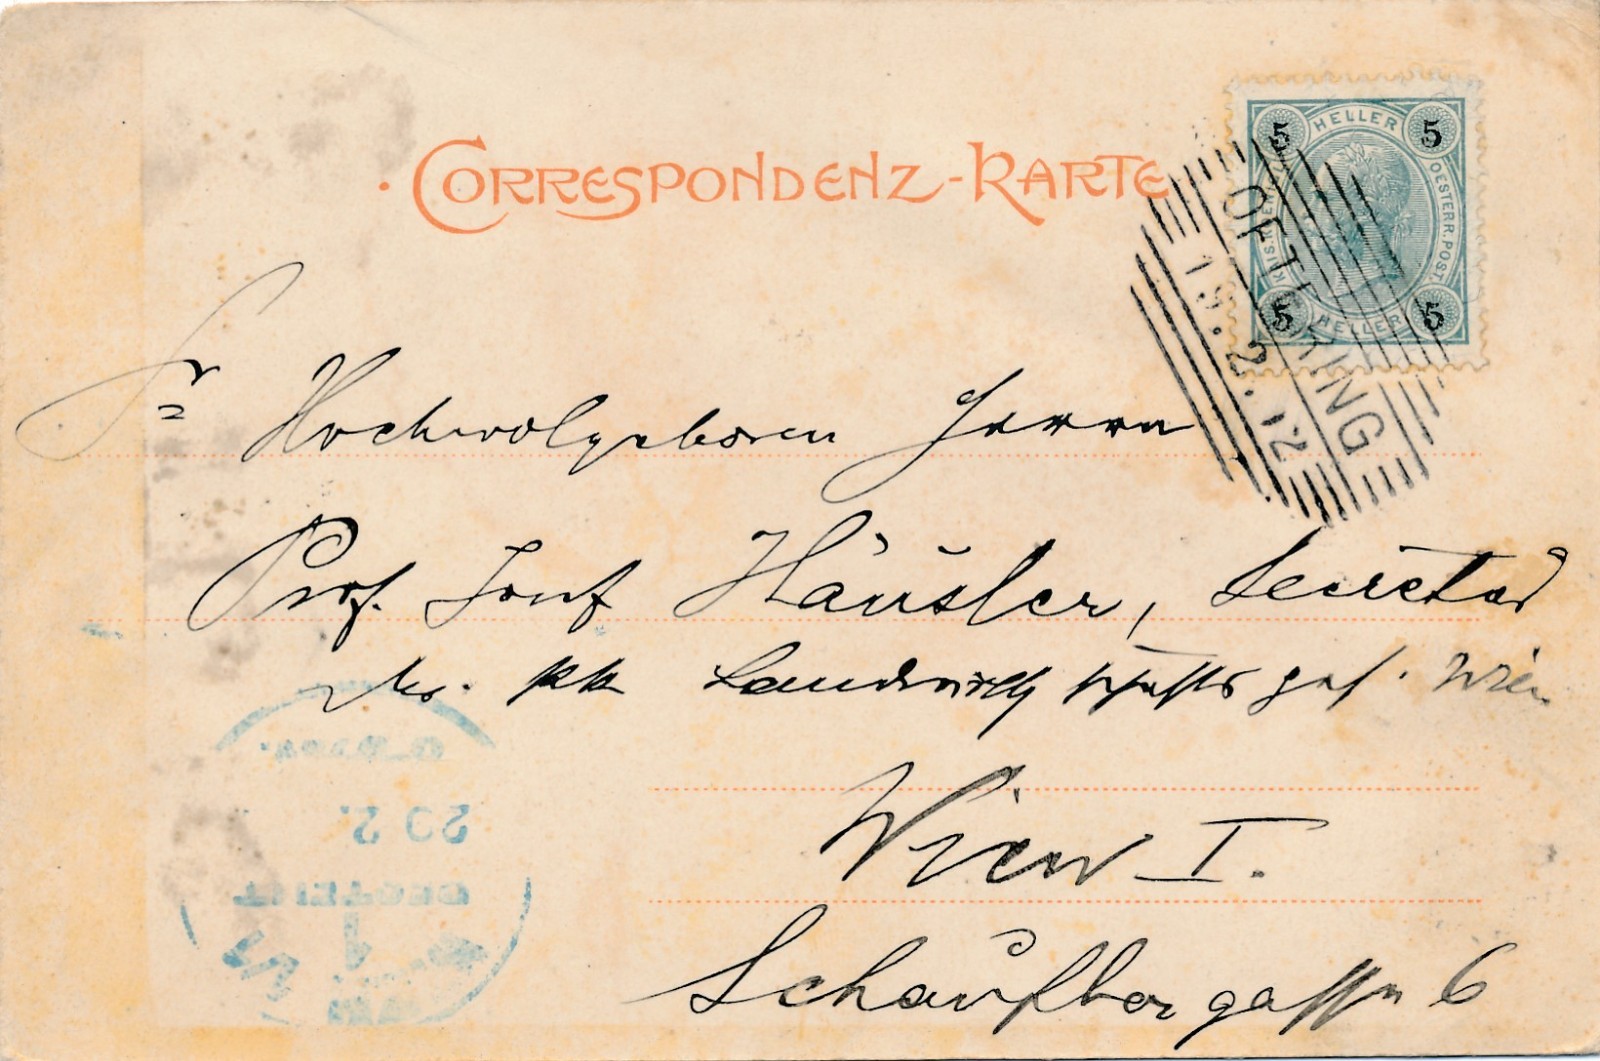 CORRESPONDENZ-KARTE
5 HELLER 5
KAIS. KOENIGL. OESTERR. POST.
5 HELLER 5
OTTAKRING
19. 2. 12
Sr Hochwolgeboren Herrn
Prof. Josef Häusler, Secretär
der kk Landwirthschaftsges. Wien
Wien I.
Schauflergasse 6
20 2.
BESTELLT
1